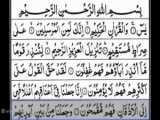 بِسْمِ اللهِ الرَّحْمٰنِ الرَّحِيْمِ
يٰسٓ ۚ وَالْقُرْاٰنِ الْحَكِيْمِ ۙ اِنَّكَ لَمِنَ الْمُرْسَلِيْنَ ۙ عَلٰى
صِرَاطٍ مُّسْتَقِيْمٍ ؕ تَنْزِيْلَ الْعَزِيْزِ الرَّحِيْمِ ۙ لِتُنْذِرَ قَوْمًا
مَّاۤ اُنْذِرَ اٰبَآؤُهُمْ فَهُمْ غٰفِلُوْنَ ۞ لَقَدْ حَقَّ الْقَوْلُ عَلٰٓى
اَكْثَرِهِمْ فَهُمْ لَا يُؤْمِنُوْنَ ۞ اِنَّا جَعَلْنَا فِيْٓ اَعْنَاقِهِمْ اَغْلٰلًا فَهِيَ
اِلَى الْاَذْقَانِ فَهُمْ مُّقْمَحُوْنَ ۞ وَجَعَلْنَا مِنْۢ بَيْنِ اَيْدِيْهِمْ